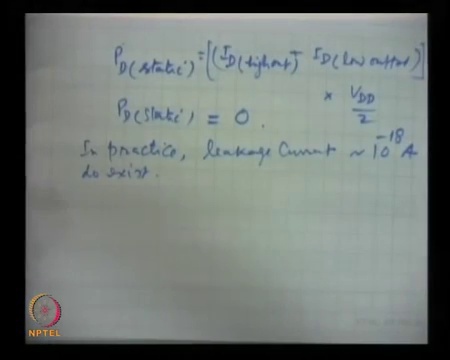 P_D(static) = [(I_D(high out) - I_D(low output)]
× V_DD/2
P_D(static) = 0.
In practice, leakage current ~ 10^-18 A
do exist.
NPTEL